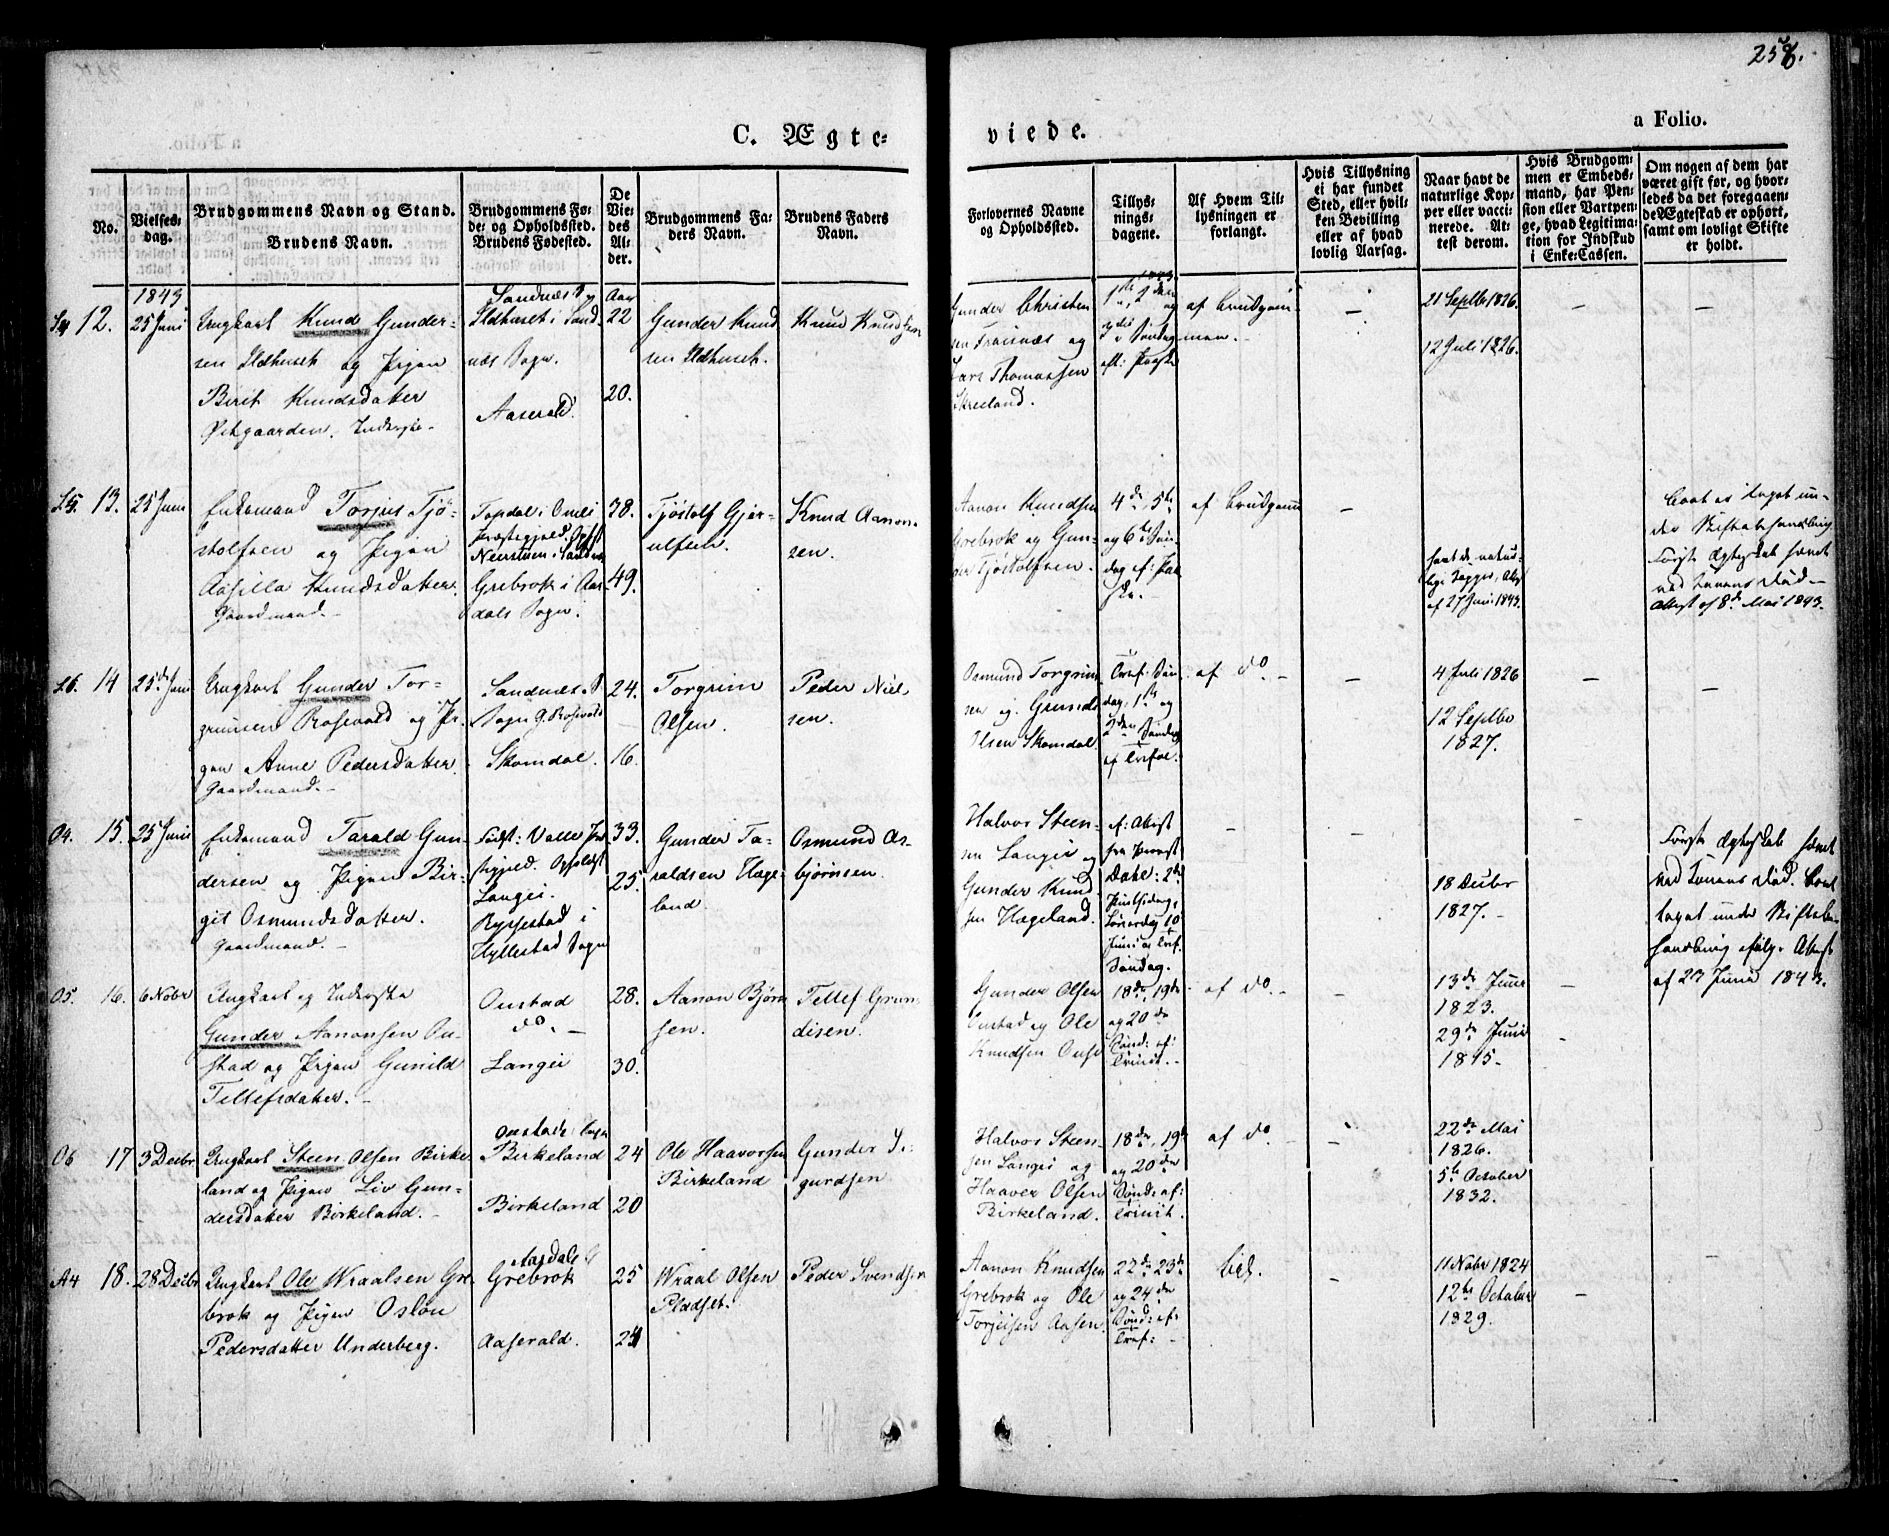 258.
C. Ægte=
viede.
a Folio.
No.
Vielses=
dag.
Brudgommens Navn og Stand.
Brudens Navn.
Brudgommens Fø=
de= og Opholdssted.
Brudens Fødested.
De
Vie=
des
Al=
der.
Brudgommens Fa=
ders Navn.
Brudens Faders
Navn.
Forlovernes Navne
og Opholdssted.
Tillys=
nings=
dagene.
Af Hvem Til=
lysningen er
forlangt.
Hvis Tillysning
ei har fundet
Sted, eller hvil=
ken Bevilling
eller af hvad
lovlig Aarsag.
Naar havt de
naturlige Kop=
per eller vacci=
nerede. At=
test derom.
Hvis Brudgom=
men er Embeds=
mand, har Pen=
sion eller Vartpen=
ge, hvad Legitima=
tion for Indskud
i Enke=Cassen.
Om nogen af dem har
været gift før, og hvor=
ledes da det foregaaen=
de Ægteskab er ophørt,
samt om lovligt Skifte
er holdt.
1843
12.
25 Juni
Ungkarl Knud Gunder-
sen Ildhuset og Pigen
Birit Knudsdatter
Østgaarden. Inderste-
Sandnæs S
Ildhuset i Sand-
næs Sogn.
Aaserald.
Aar
22
20.
Gunder Knud
sen Ildhuset.
Knud Knudsen
Gunder Christen
sen Frøisnæs og
Lars Thomassen
Skreeland.
1ste, 2den og
3die Søndag
eft: Paaske
af Brudgom
men.
21 Septbr 1826.
12 Juli 1826.
13.
25 Juni
Enkemand Torjus Tjø-
stolfsen og Pigen
Aasilla Knudsdatter.
Gaardmand.
Topdal i Omli
Præstegjeld. Opst
Neerstuen i Sandnæs
Grebrok i Aar-
dals Sogn.
38.
49.
Tjøstolf Gjer-
ulfsen.
Knud Aanon-
sen.
Aanon Knudsen
Grebrok og Gun-
der Tjøstolfsen.
4de, 5te
og 6te Søn-
dag ef: Paa
ske.
af Brudgom
havt de natur-
lige Kopper, Attest
af 27 Juni 1843.
Første Ægteskab hævet
ved Konens Død
Attest af 8de Mai 1843.
14
25de Juni
Ungkarl Gunder Tor-
grimsen Rosevold og Pi-
gen Anne Pedersdatter.
Gaardmand.
Sandnæs
Sogn G. Rosevold
Skomdal.
24.
16.
Torgrim
Olsen.
Peder Niel
sen.
Osmund Torgrim
sen og Grunds
Olsen Skomdal.
Tref: Søn
dag, 1ste og
2den Søndag
ef Trefol.
af do.
4 Juli 1826
12 Septbr
1827.
04.
15.
25 Juni
Enkemand Tarald Gun-
dersen og Pigen Bir-
git Osmundsdatter.
Gaardmand.
Født: Valle Præ
stegjeld. Opholdst
Langei.
Ryssestad i
Hyllestad Sogn
33.
25.
Gunder Ta-
raldsen Hæge-
land.
Osmund As-
bjørnsen.
Halvor Steen-
sen Langei og
Gunder Knud
sen Hægeland.
ef: Attest
fra Provst
Dahl: 2den
Pintsedag,
Løverdag 10
Juni og Tref.
Søndag.
18 Decbr
1827.
Første Ægteskab hævet
ved Konens Død. Boet
taget under Skiftebe-
handling ifølge Attest
af 27 Juni 1843.
05.
16.
6 Nobr
Ungkarl og Inderste
Gunder Aanonsen On-
stad og Pigen Gunild
Tellefsdatter.
Onstad
do.
Langei
28.
30.
Aanon Bjørn
sen.
Tellef Grun-
disen.
Gunder Olsen
Onstad og Ole
Knudsen Ouse
18de, 19de
og 20de
Sønd: ef:
Trinit.
af do.
13de Juni
1823.
29de Juni
1815.
06
17
3 Decbr
Ungkarl Steen Olsen Birke
land og Pigen Liv Gun-
dersdatter Birkeland.
Onstads Sogn
Birkeland
Birkeland
24
20
Ole Haavorsen
Birkeland
Gunder Si-
gurdsen
Halvor Steen-
sen Langei og
Haaver Olsen
Birkeland.
18de, 19de
og 20de
Sønd: ef:
Trinit.
af do.
22de Mai
1826.
5te October
1832.
A4
18.
28 Decbr
Ungkarl Ole Wraalsen Gre
brok og Pigen Osløn
Pedersdatter Underberg.
Aardals S
Grebrok
Aaserald.
25
24
Wraal Olsen
Pladset.
Peder Svendsen
Aanon Knudsen
Grebrok og Ole
Torjeisen Aasen.
22de, 23de
og 24de
Sønd: ef:
Tref:
lid.
11 Nobr 1824
12te October
1829.